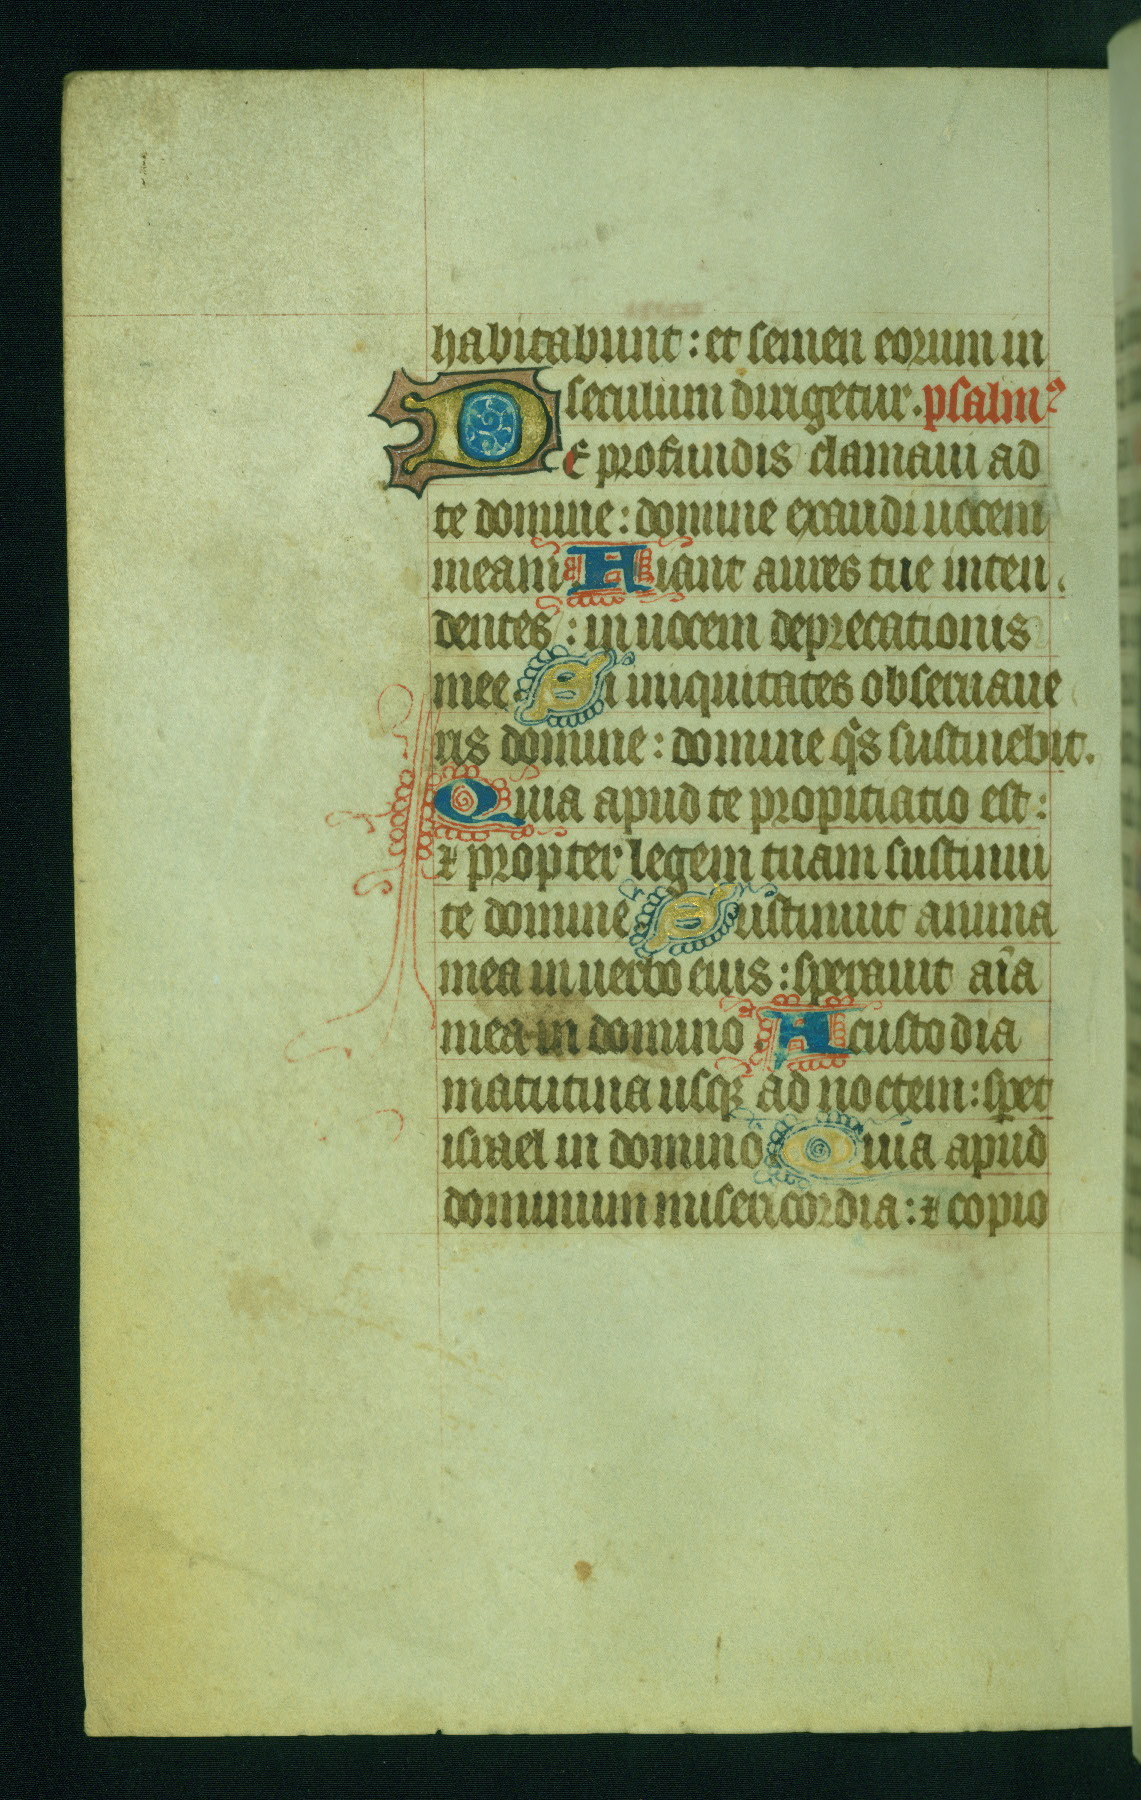 habitabunt : et semen eorum in
seculum dirigetur . psalmꝰ
DE profundis clamaui ad
te domine : domine exaudi uocem
meam Fiant aures tue inten
dentes : in uocem deprecationis
mee Si iniquitates obseruaue
ris domine : domine qͥs sustinebit .
Quia apud te propitiatio est :
⁊ propter legem tuam sustinui
te domine Sustinuit anima
mea in uerbo eius : sperauit aīa
mea in domino . A custodia
matutina usqꝫ ad noctem : sꝑet
israel in domino Quia apud
dominum misericordia : ⁊ copio